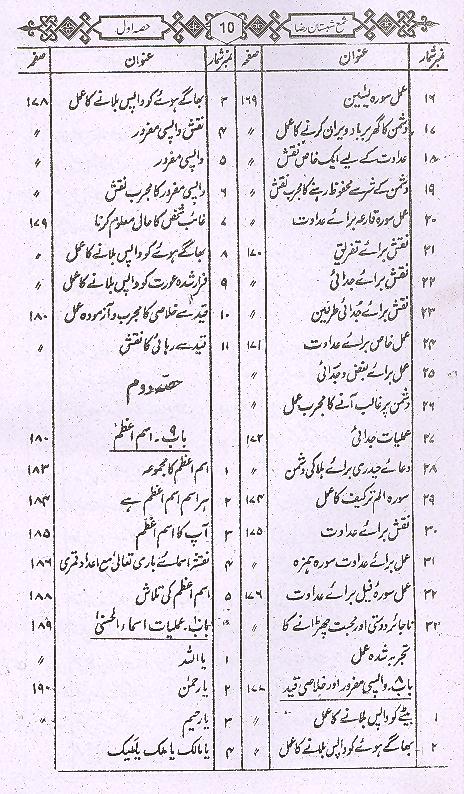 شمع شبستان رضا
10
حصہ اول
نمبر شمار عنوان صفحہ
۱۶ عمل سورہ یٰسین ۱۶۹
۱۷ دشمن کا گھر برباد ویران کرنے کا عمل 〃
۱۸ عداوت کے لیے ایک خاص نقش 〃
۱۹ دشمن کے شر سے محفوظ رہنے کا مجرب نقش 〃
۲۰ عمل سورہ قارعہ برائے عداوت 〃
۲۱ نقش برائے تفریق ۱۷۰
۲۲ نقش برائے جدائی 〃
۲۳ نقش برائے جدائی طرفین 〃
۲۴ عمل خاص برائے عداوت ۱۷۱
۲۵ عمل برائے بغض و جدائی 〃
۲۶ دشمن پر غالب آنے کا مجرب عمل 〃
۲۷ عملیات جدائی ۱۷۲
۲۸ دعائے حیدری برائے ہلاکی دشمن 〃
۲۹ سورہ الم ترکیف کا عمل ۱۷۴
۳۰ نقش برائے عداوت ۱۷۵
۳۱ عمل برائے عداوت سورہ ہمزہ 〃
۳۲ عمل سورۂ فیل برائے عداوت ۱۷۶
۳۳ ناجائز دوستی اور محبت چھڑانے کا 〃
تجربہ شدہ عمل
باب ۸۔ واپسی مفرور اور خلاصی قید ۱۷۷
۱ بیٹے کو واپس بلانے کا عمل 〃
۲ بھاگے ہوئے کو واپس بلانے کا عمل 〃
نمبر شمار عنوان صفحہ
۳ بھاگے ہوئے کو واپس بلانے کا عمل ۱۷۸
۴ نقش واپسی مفرور 〃
۵ واپسی مفرور 〃
۶ واپسی مفرور کا مجرب نقش 〃
۷ غائب شخص کا حال معلوم کرنا ۱۷۹
۸ بھاگے ہوئے کو واپس بلانے کا عمل 〃
۹ فرار شدہ عورت کو واپس بلانے کا عمل 〃
۱۰ قید سے خلاصی کا مجرب و آزمودہ عمل ۱۸۰
۱۱ قید سے رہائی کا نقش 〃
حصہ دوم
باب ۹۔ اسم اعظم ۱۸۰
۱ اسم اعظم کا مجموعہ ۱۸۳
۲ ہر اسم اسم اعظم ہے ۱۸۴
۳ آپ کا اسم اعظم ۱۸۵
۴ نقشہ اسمائے باری تعالیٰ مع اعداد قمری ۱۸۶
۵ اسم اعظم کی تلاش ۱۸۸
باب ۱۰۔ عملیات اسماء الحسنیٰ ۱۸۹
۱ یا اللہ 〃
۲ یا رحمٰن ۱۹۰
۳ یا رحیم 〃
۴ یا مالک یا ملک یا ملیک 〃